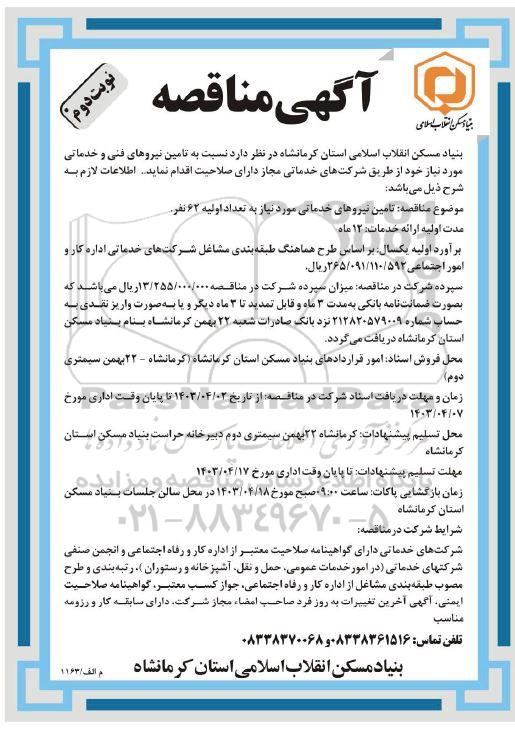 بنیاد مسکن انقلاب اسلامی
آگهی مناقصه
نوبت دوم
بنیاد مسکن انقلاب اسلامی استان کرمانشاه در نظر دارد نسبت به تامین نیروهای فنی و خدماتی
مورد نیاز خود از طریق شرکت‌های خدماتی مجاز دارای صلاحیت اقدام نماید.. اطلاعات لازم به
شرح ذیل می‌باشد:
موضوع مناقصه: تامین نیروهای خدماتی مورد نیاز به تعداد اولیه ۶۲ نفر.
مدت اولیه ارائه خدمات: ۱۲ ماه
برآورد اولیه یکسال: بر اساس طرح هماهنگ طبقه‌بندی مشاغل شرکت‌های خدماتی اداره کار و
امور اجتماعی ۲۶۵/۰۹۱/۱۱۰/۵۹۲ ریال.
سپرده شرکت در مناقصه: میزان سپرده شرکت در مناقصه ۱۳/۲۵۵/۰۰۰/۰۰۰ ریال می‌باشد که
بصورت ضمانت‌نامه بانکی به‌مدت ۳ ماه و قابل تمدید تا ۳ ماه دیگر و یا به‌صورت واریز نقدی به
حساب شماره ۲۱۲۸۲۰۵۷۹۰۰۹ نزد بانک صادرات شعبه ۲۲ بهمن کرمانشاه بنام بنیاد مسکن
استان کرمانشاه دریافت می‌گردد.
محل فروش اسناد: امور قراردادهای بنیاد مسکن استان کرمانشاه (کرمانشاه - ۲۲بهمن سیمتری
دوم)
زمان و مهلت دریافت اسناد شرکت در مناقصه: از تاریخ ۱۴۰۳/۰۴/۰۲ تا پایان وقت اداری مورخ
۱۴۰۳/۰۴/۰۷
محل تسلیم پیشنهادات: کرمانشاه ۲۲بهمن سیمتری دوم دبیرخانه حراست بنیاد مسکن استان
کرمانشاه
مهلت تسلیم پیشنهادات: تا پایان وقت اداری مورخ ۱۴۰۳/۰۴/۱۷
زمان بازگشایی پاکات: ساعت ۰۹:۰۰صبح مورخ ۱۴۰۳/۰۴/۱۸ در محل سالن جلسات بنیاد مسکن
استان کرمانشاه
شرایط شرکت در مناقصه:
شرکت‌های خدماتی دارای گواهینامه صلاحیت معتبر از اداره کار و رفاه اجتماعی و انجمن صنفی
شرکتهای خدماتی (در امور خدمات عمومی، حمل و نقل، آشپزخانه و رستوران )، رتبه‌بندی و طرح
مصوب طبقه‌بندی مشاغل از اداره کار و رفاه اجتماعی، جواز کسب معتبر، گواهینامه صلاحیت
ایمنی، آگهی آخرین تغییرات به روز فرد صاحب امضاء مجاز شرکت، دارای سابقه کار و رزومه
مناسب
تلفن تماس: ۰۸۳۳۸۳۶۱۵۱۶ و ۰۸۳۳۸۳۷۰۰۶۸
بنیاد مسکن انقلاب اسلامی استان کرمانشاه
م الف/۱۱۶۳
ParsNamadData
پایگاه اطلاع رسانی مناقصه و مزایده
۰۲۱-۸۸۳۴۹۶۷۰-۵